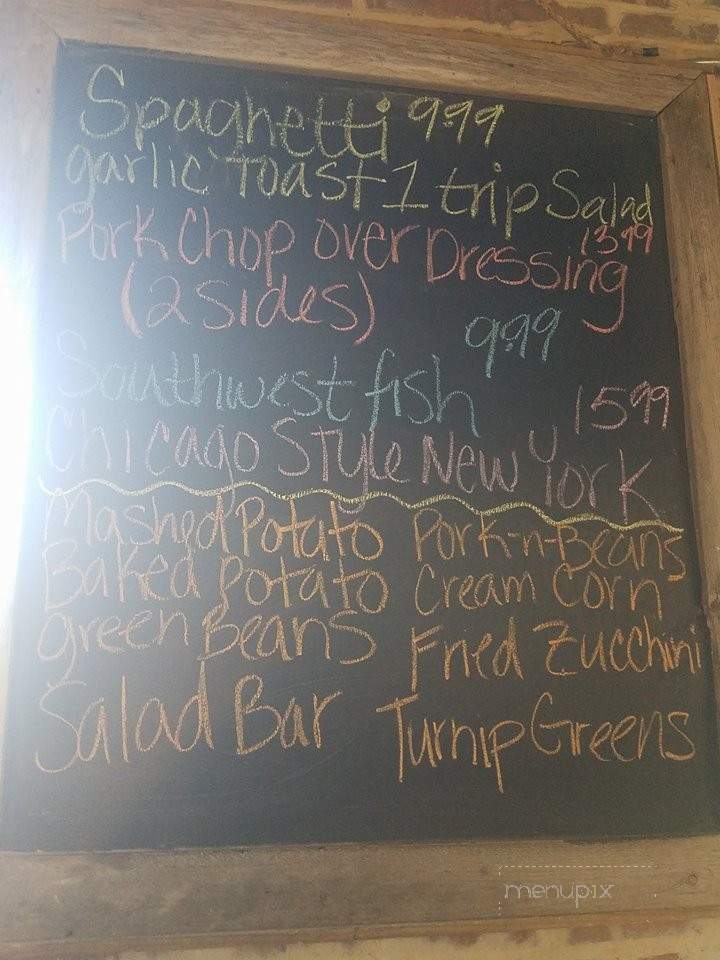 Spaghetti 9.99
garlic Toast 1 trip Salad
Pork Chop over Dressing 13.99
(2 sides)
Southwest fish 9.99
Chicago Style New York 15.99
Mashed Potato Pork-n-Beans
Baked Potato Cream Corn
green Beans Fried Zucchini
Salad Bar Turnip Greens
menupix